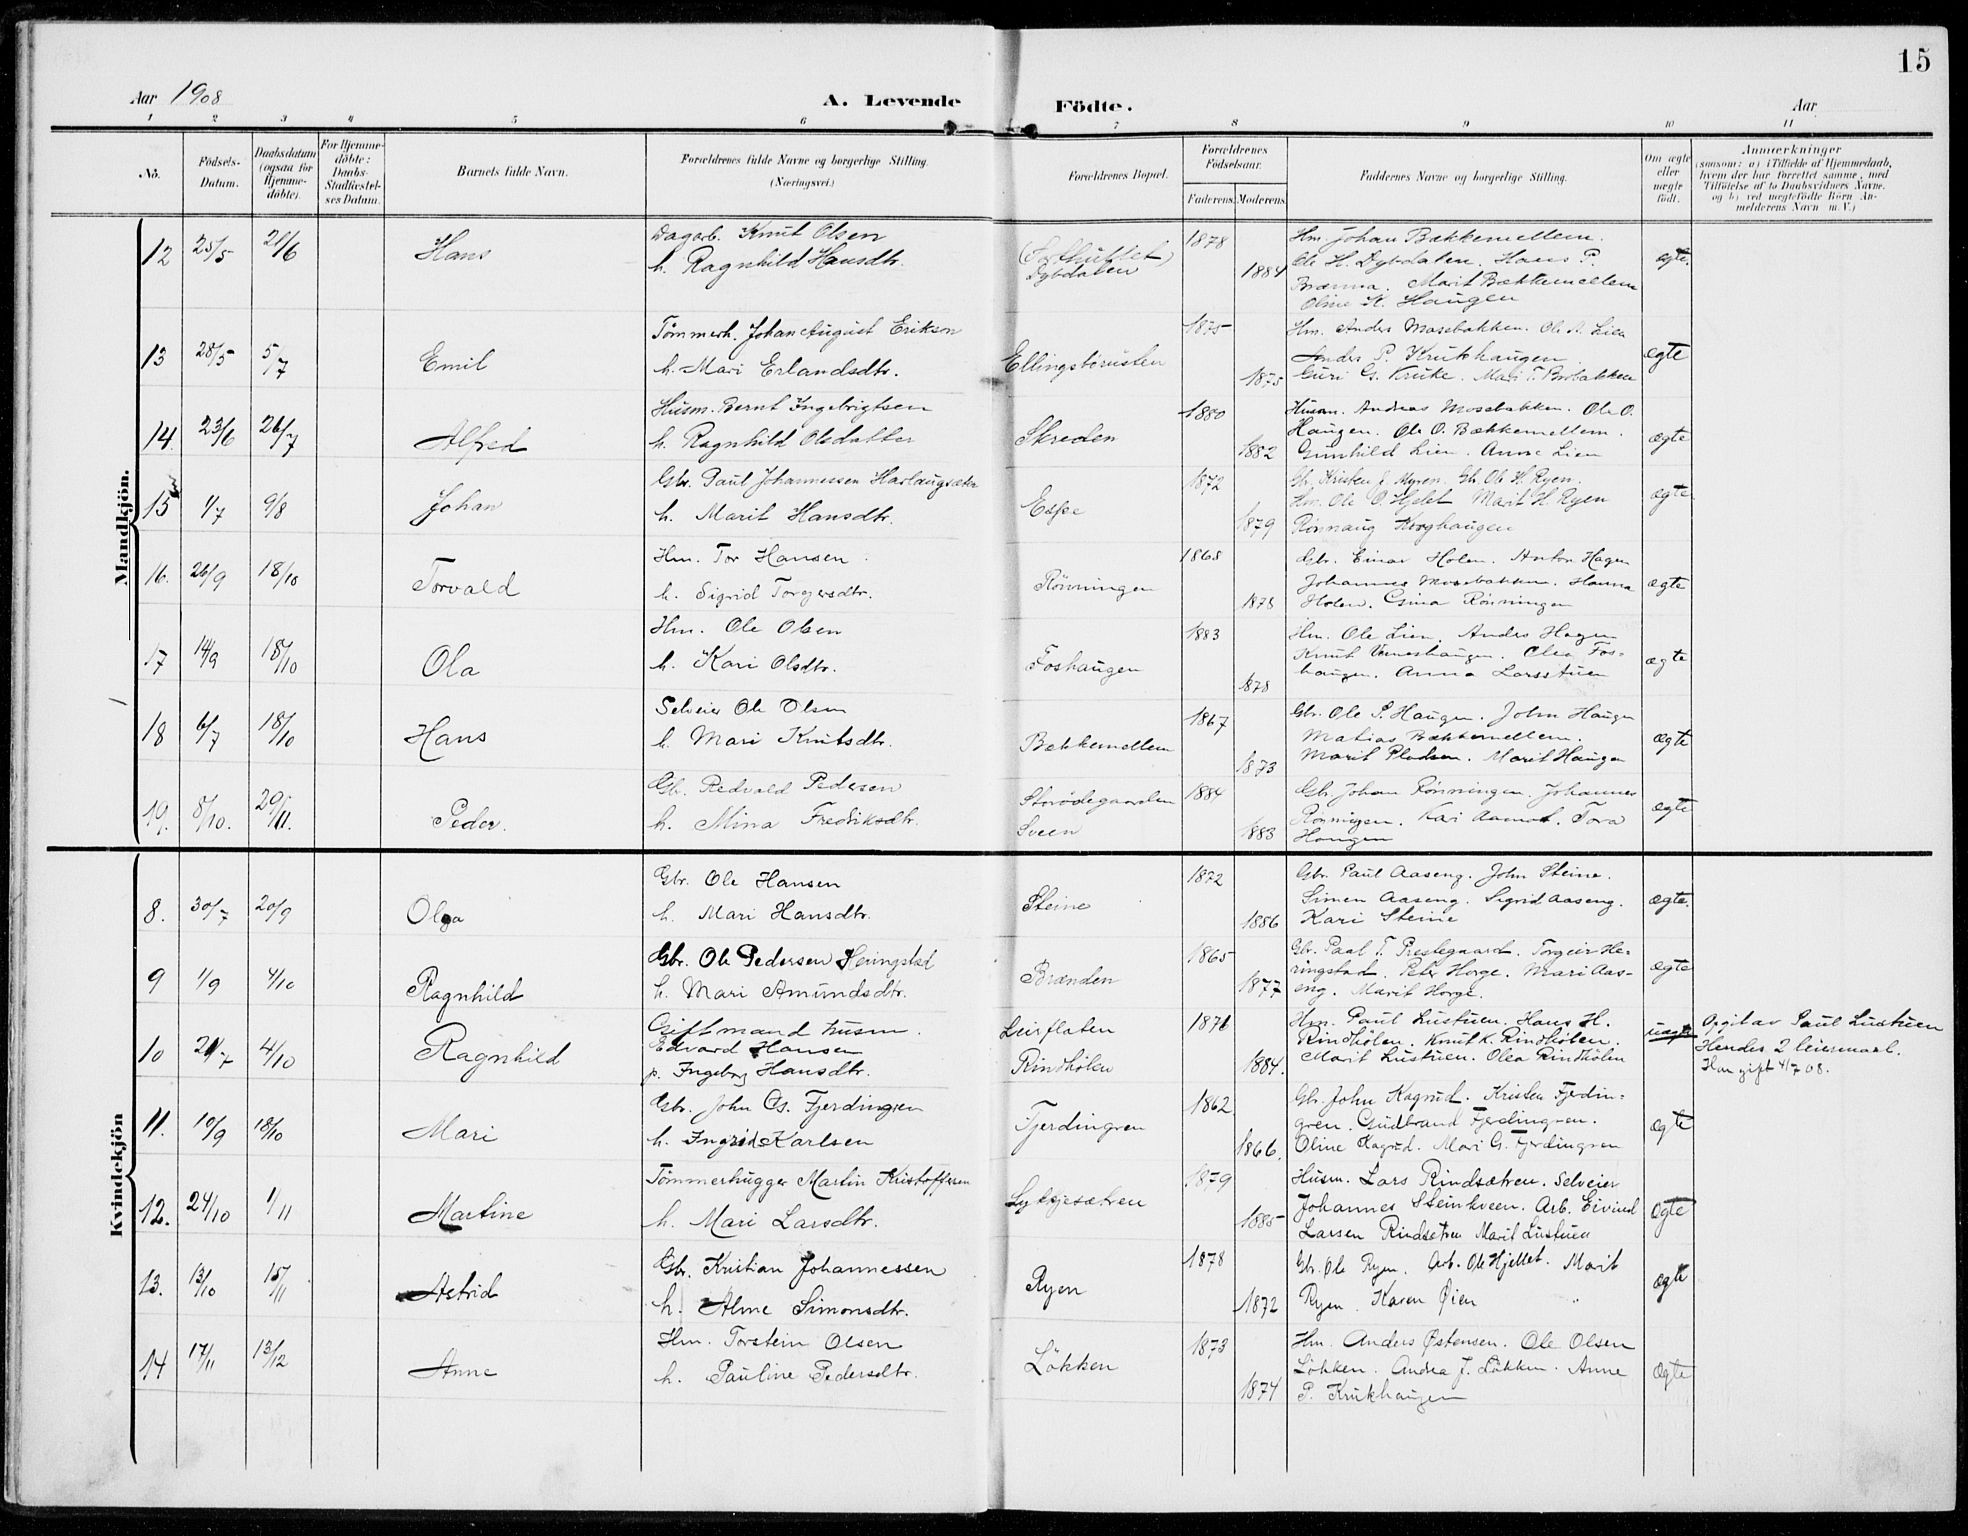 15
Aar 1908
A. Levende Födte.
Aar
1 2 3 4 5 6 7 8 9 10 11
No.
Födsels-Datum.
Daabsdatum (ogsaa for Hjemme-döbte).
For Hjemme-döbte: Daabs-Stadfæstel-ses Datum.
Barnets fulde Navn.
Forældrenes fulde Navne og borgerlige Stilling. (Næringsvei.)
Forældrenes Bopæl.
Forældrenes Födselsaar.
Faderens. Moderens.
Faddernes Navne og borgerlige Stilling.
Om ægte eller uægte födt.
Anmærkninger
(saasom: a) i Tilfælde af Hjemmedaab,
hvem der har forrettet samme, med
Tilföielse af to Daabsvidners Navne.
og b) ved uægtefödte Börn An-
melderens Navn m. V.)
Mandkjön.
12 25/5 21/6 Hans
Dagarb. Knut Olsen
h. Ragnhild Hansdtr.
Dybdalen
1878
1884
Hm. Johan Bækkemellem.
Ole H. Dybdalen. Hans P.
Brænna. Marit Bækkemellem
Oline K. Haugen
ægte.
13 28/5 5/7 Emil
Tømmerh. Johan August Erikson
h. Mari Erlandsdtr.
Ellingsbørusten
1875
1875
Hm. Anders Mosebakken. Ole A. Lien
Anders P. Krukhaugen.
Guri G. Kruke. Mari T. Brobakken
ægte
14. 23/6 26/7 Alfred
Husm. Bernt Ingebrigtsen
h. Ragnhild Olsdatter
Skreden
1880
1882
Husm. Andreas Mosebakken. Ole O.
Haugen. Ole O. Bækkemellem.
Gunhild Lien. Anne Lien
ægte
15 1/7 9/8 Johan
Gbr. Paul Johannessen Harlaugsæter
h. Marit Hansdtr.
1872
1879
Gb. Kristen J. Myren. Gb. Ole H. Ryen.
Hm. Ole O. Hjelet Marit H. Ryen
Rønnaug Korghaugen
ægte
16. 26/9 18/10 Torvald
Hm. Tor Hansen.
h. Sigrid Torgersdtr.
Rönningen
1868
1878
Gbr. Einar Holen. Anton Hagen
Johannes Mosebakken. Hanna
Holen. Gina Rønningen
ægte
17 14/9 18/10 Ola
Hm. Ole Olsen
h. Kari Olsdtr.
Foshaugen
1883
1878
Hm. Ole Lien. Anders Hagen
Knut Verneshaugen. Olea Fos-
haugen. Anna Larsstuen
ægte
18 6/7 18/10 Hans
Selveier Ole Olsen
h. Mari Knutsdtr.
Bækkemellem
1867
1873
Gbr. Ole P. Haugen. John Haugen
Matias Bækkemellem.
Marit Pladsen. Marit Haugen
ægte
19. 8/10. 29/11. Peder.
Gb. Redvald Pedersen
h. Mina Fredriksdtr.
Storödegaarden
Sveen
1884
1883
Gb. Johan Rönningen. Johannes
Rönnigen. Kari Aamot. Tora
Haugen
ægte
Kvindekjön
8. 30/7 20/9 Olga
Gbr. Ole Hansen
h. Mari Hansdtr.
Steine
1872
1886
Gbr. Paul Aaseng. John Steine.
Simen Aaseng. Sigrid Aaseng.
Kari Steine
ægte.
9 1/9 4/10 Ragnhild
Gbr. Ole Pedersen Heringstad
h. Mari Amundsdtr.
Brænden
1865
1877
Gbr. Paal T. Prestegaard. Torgeir He-
ringstad. Peter Horge. Mari Aas-
eng. Marit Horge.
ægte
10 21/7 4/10 Ragnhild
Gift mand husm.
Edvard Hansen
p. Ingeborg Hansdtr.
Leirflaten
Rindhölen
1871
1884.
Hm. Paul Lustuen. Hans H.
Rindhölen. Knut K. Rindhölen.
Marit Lustuen. Olea Rindhölen
uægte
Opgit av Paul Lustuen
Hendes 2 leiermaal.
Han gift 4/7 08.
11. 10/9 18/10 Mari
Gbr. John Gs. Fjerdingren
h. Ingrid Karlsen
Fjerdingren
1862
1866.
Gbr. John Kagrud. Kristen Fjerdin-
gren. Gudbrand Fjerdingren.
Oline Kagrud. Mari G. Fjerdingren
ægte
12. 24/10 1/11 Martine
Tömmerhugger Martin Kristoffersen
h. Mari Larsdtr.
Lykkjesætren
1879
1885
Husm. Lars Rindsætren. Selveier
Johannes Steinkveen. Arb. Eivind
Larsen Rindsætren Marit Lustuen
ægte
13. 13/10 15/11 Astrid
Gbr. Kristian Johannessen
h. Alme Simonsdtr.
Ryen
1878
1872
Gbr. Ole Ryen. Arb. Ole Hjellet. Marit
Ryen. Karen Øien
ægte
14 17/11 13/12 Anne
Hm. Torstein Olsen
h. Pauline Pedersdtr.
Lökken
1873
1874
Hm. Anders Østensen. Ole Olsen
Lökken. Andrea J. Lökken. Anne
P. Krukhaugen
ægte